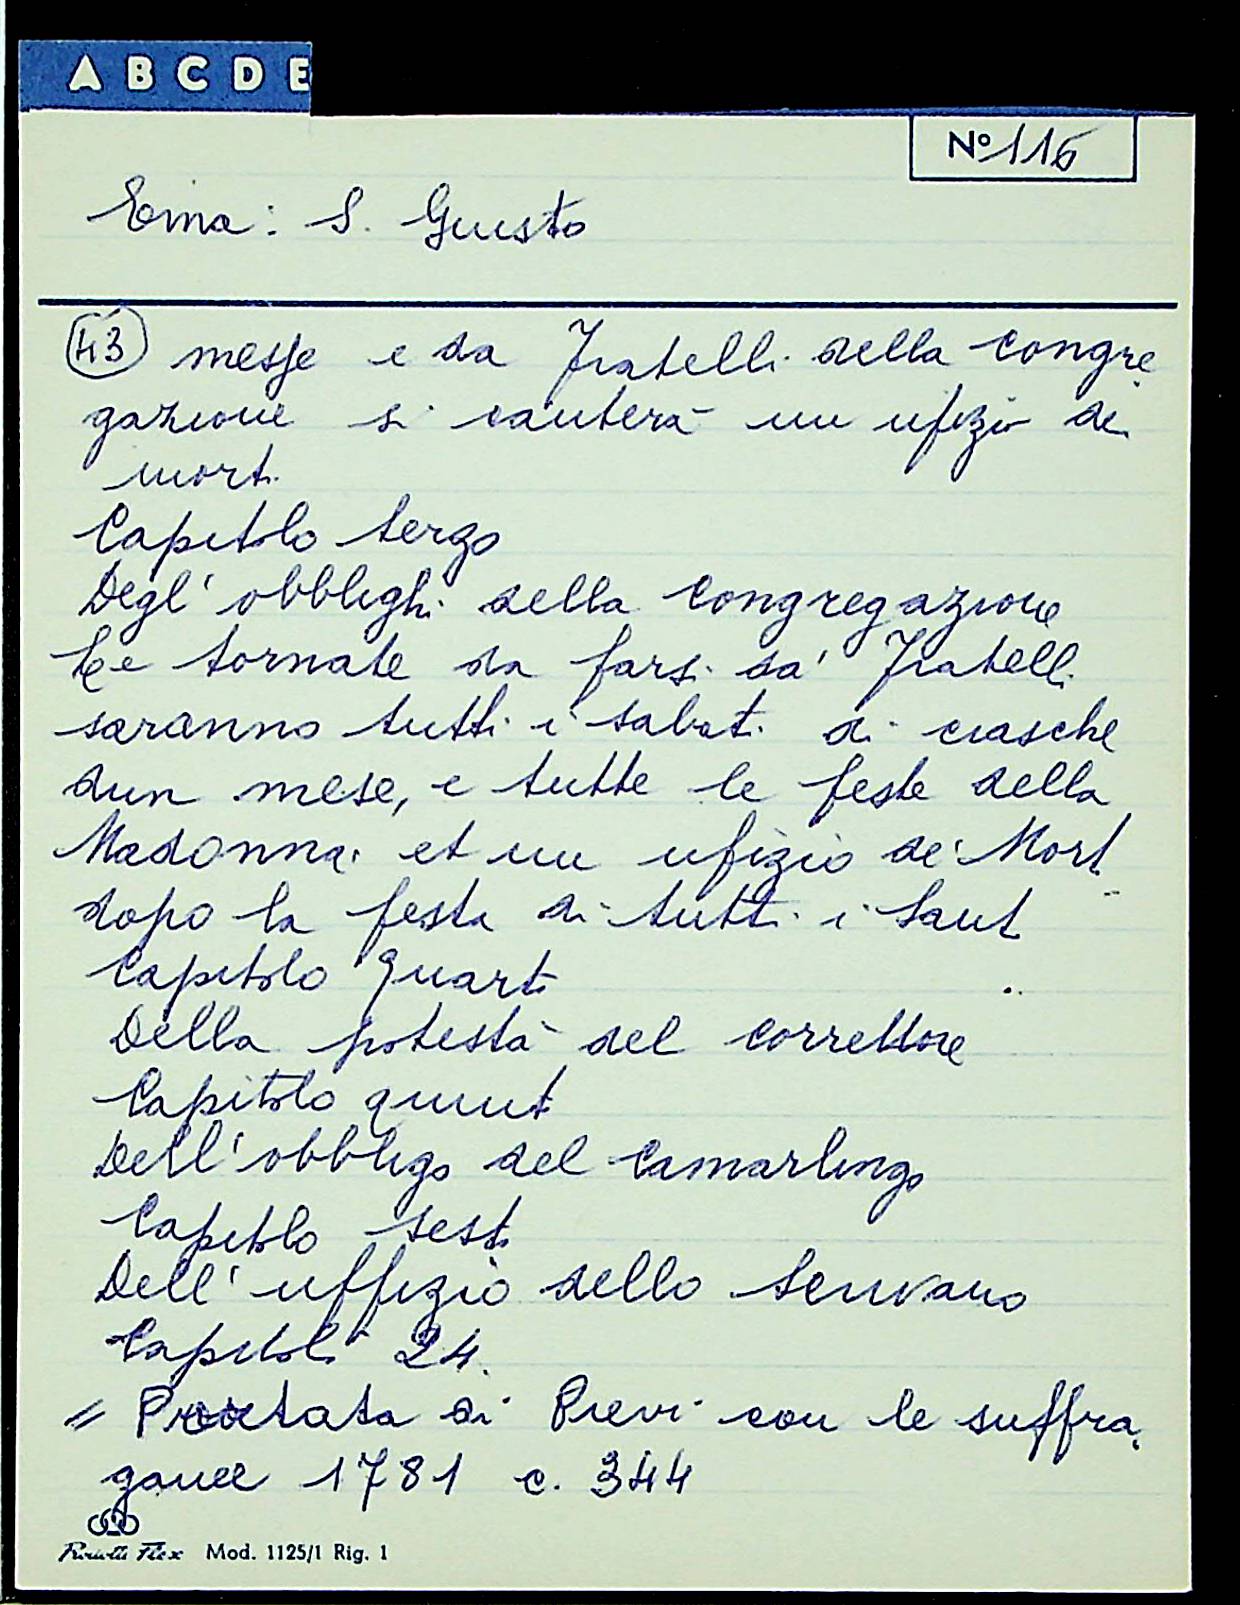 A B C D E
Nº 116
Ema: S. Giusto
43 messe e da Fratelli della congre
gazione si canterà un ufizio de
morti
Capitolo terzo
Degl' obblighi della congregazione
Le tornate da farsi da' Fratelli
saranno tutti i sabati di ciasche
dun mese, e tutte le feste della
Madonna: et un ufizio de' Morti
dopo la festa di tutti i Santi
Capitolo quarto
Della potestà del correttore
Capitolo quinto
Dell'obbligo del Camarlingo
Capitolo sesto
Dell'uffizio dello Scrivano
Capitoli 24.
= Portata di Pievi con le suffra
ganee 1781 c. 344
Mod. 1125/1 Rig. 1